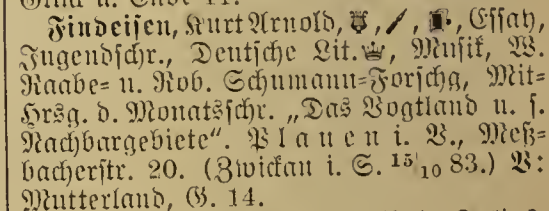 Findeisen, Kurt Arnold, Essay,
Jugendschr., Deutsche Lit., Musik, W.
Raabe- u. Rob. Schumann-Forschg, Mit-
Hrsg. d. Monatsschr. „Das Vogtland u. s.
Nachbargebiete“. Plauen i. V., Meß-
bacherstr. 20. (Zwickau i. S. 15/10 83.) V:
Mutterland, G. 14.